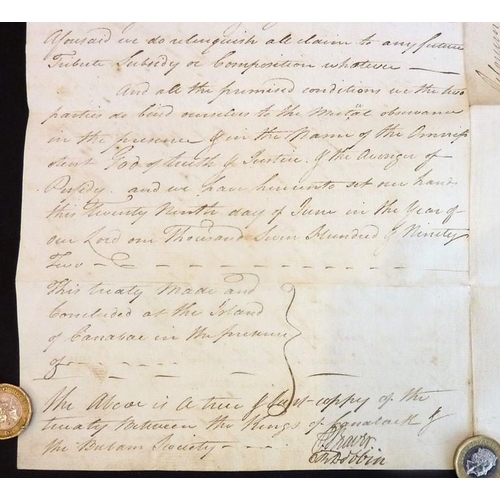 Afousaid we do relinquish all claim to any future
Tribute Subsidy or Composition whatever —
And all the promised conditions we the two
parties do bind ourselves to the Mutal observance
in the presence & in the Name of the Omnip
otent God of truth & Justice & the Avenger of
Perfidy and we have hereunto set our hands
this twenty Ninth day of June in the Year of
our Lord one Thousand Seven Hundred & Ninety
Two
This treaty Made and
Concluded at the Island
of Canabac in the presence
of
The Above is a true & Just coppy of the
treaty between the Kings of Canaback &
the Bulam Society
J Dobbin